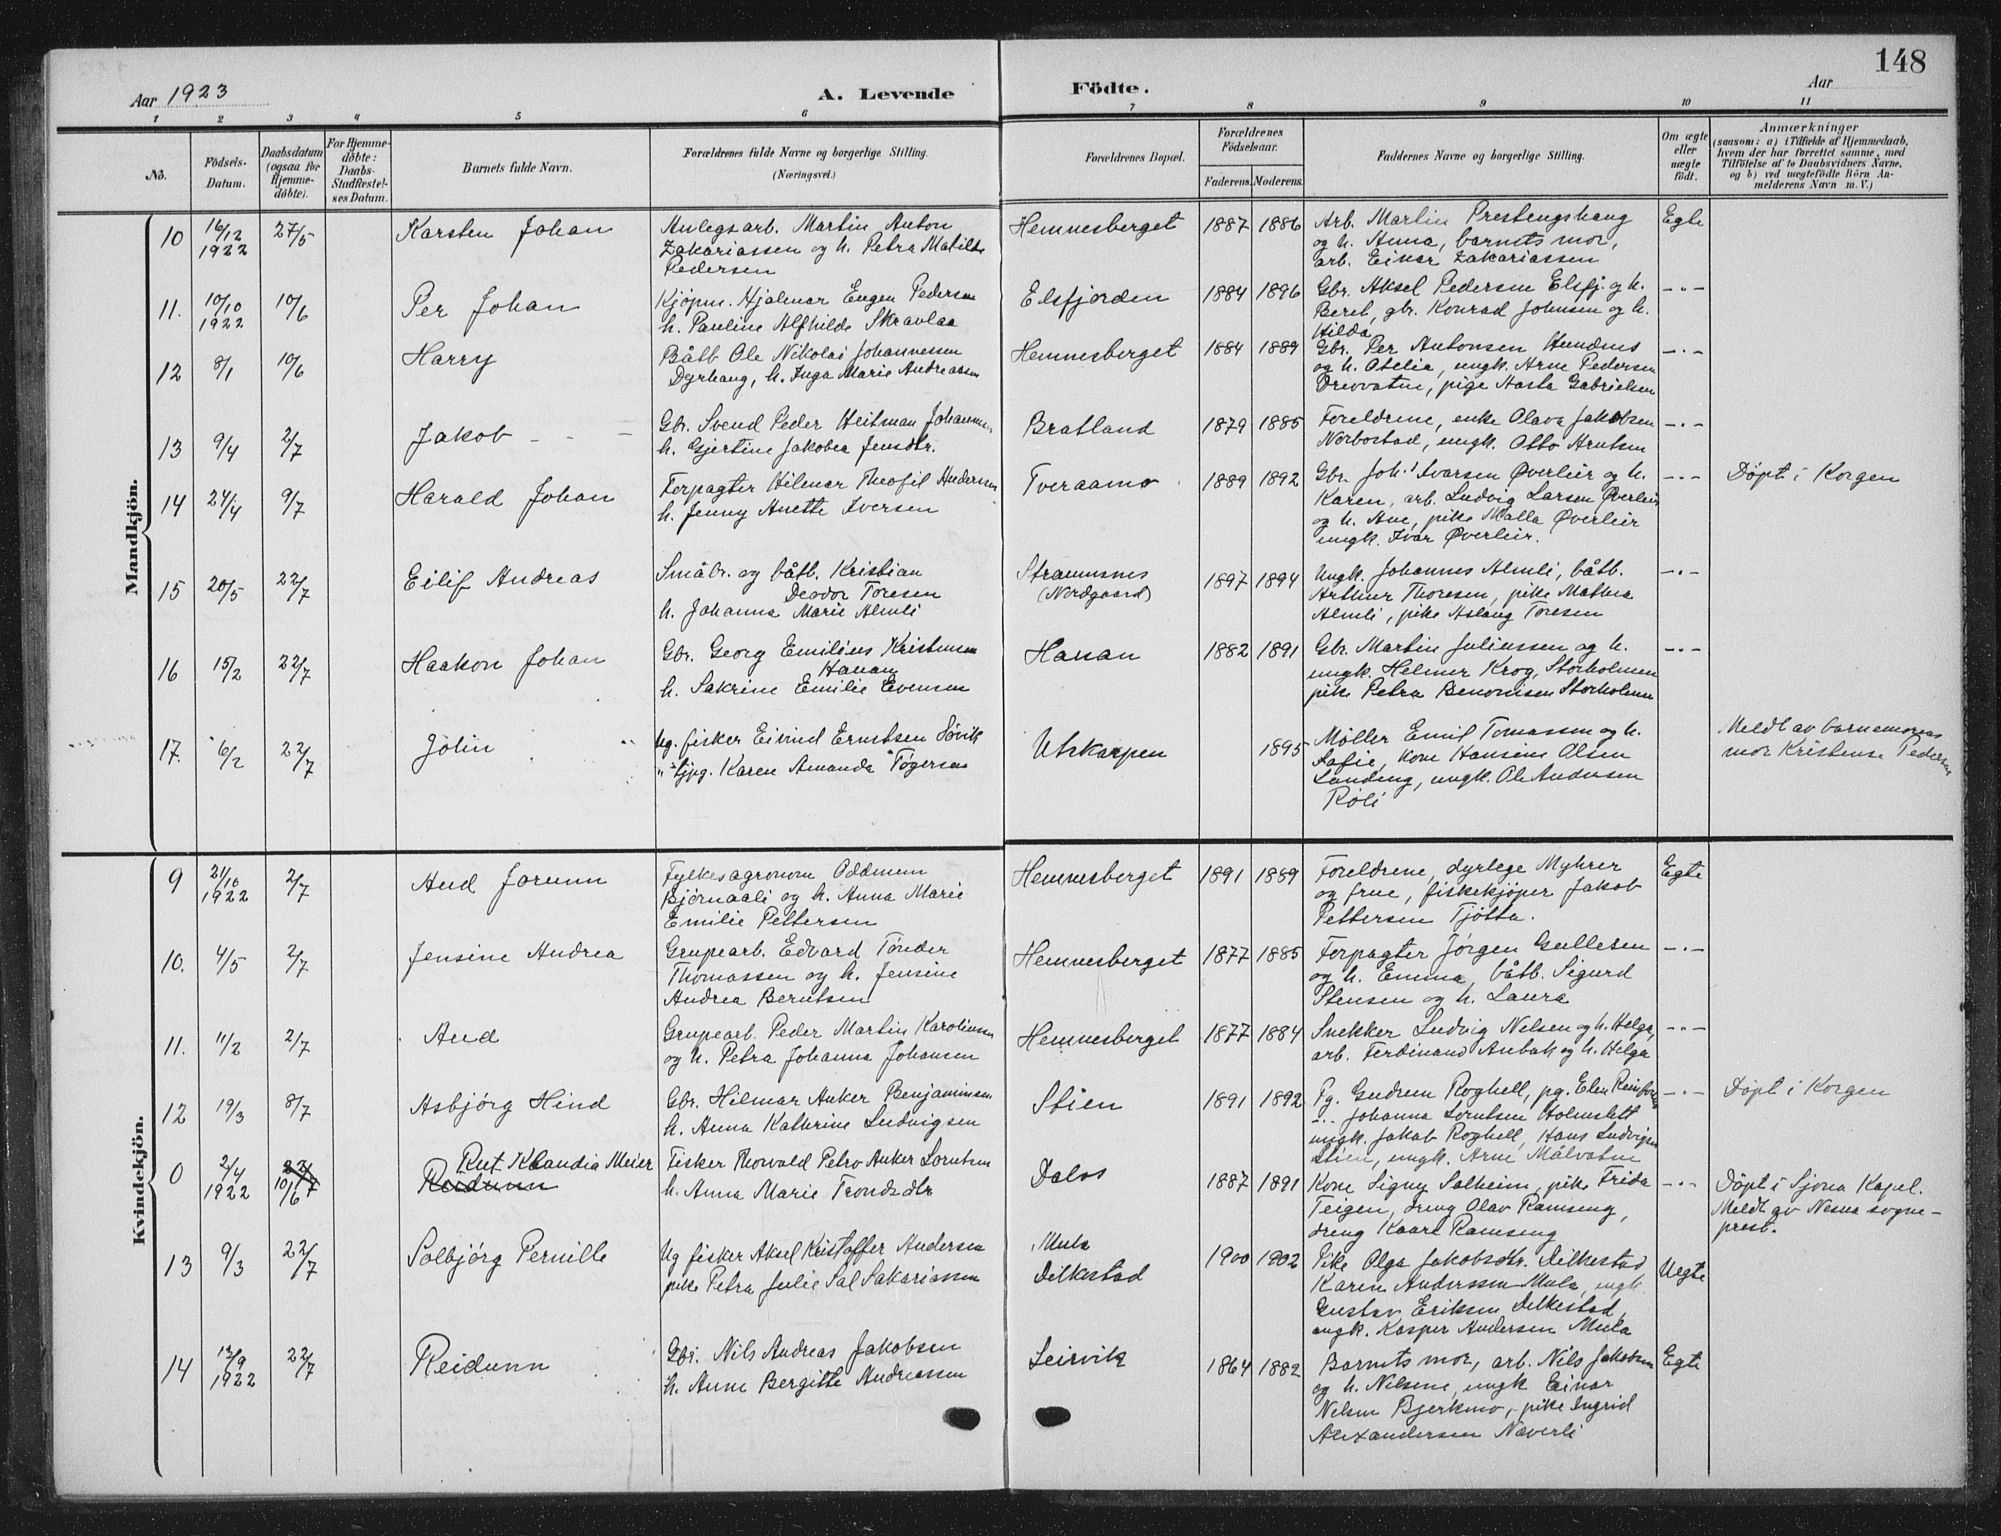 148
Aar 1923
A. Levende Födte.
Aar
1 2 3 4 5 6 7 8 9 10 11
No.
Födsels-Datum.
Daabsdatum (ogsaa for Hjemme-döbte).
For Hjemme-döbte: Daabs-Stadfæstelses Datum.
Barnets fulde Navn.
Forældrenes fulde Navne og borgerlige Stilling. (Næringsvei.)
Forældrenes Bopæl.
Forældrenes Födselsaar.
Faderens. Moderens.
Faddernes Navne og borgerlige Stilling.
Om ægte eller uægte födt.
Anmærkninger
(saasom: a) i Tilfælde af Hjemmedaab, hvem der har forrettet samme, med Tilföielse af to Daabsvidners Navne, og b) ved uægtefödte Börn Anmelderens Navn m. V.)
Mandkjön.
10 16/12 1922 27/5 Karsten Johan
Anlegsarb. Martin Anton
Zakariassen og h. Petra Matilde
Pedersen
Hemnesberget 1887 1886
Arb. Martin Prestengshaug
og h. Anna, barnets mor,
arb. Einar Zakariassen
Egte
11. 10/10 1922 10/6 Per Johan
Kjøpm. Hjalmar Eugen Pedersen
h. Pauline Alfhilde Skravlaa
Elsfjorden 1884 1896
Gbr. Aksel Pedersen Elsfj. og h.
Beret, gbr. Konrad Johnsen og h.
Hilda
—„—
12 8/1 10/6 Harry
Båtb Ole Nikolai Johannessen
Dyrhaug, h. Inga Marie Andreassen
Hemnesberget 1884 1889
Gbr. Per Antonsen
og h. Otelia, ungk. Arne Pedersen
Drevvatne, pige Aasta Gabrielsen
—„—
13 9/4 2/7 Jakob
Gbr. Svend Peder Heitman
h. Gjertine Jakobea Jensdtr.
Bratland 1879 1885
Foreldrene, enke Olava Jakobsen
Norbostad, ungk. Otto Arntsen
—„—
14 24/4 9/7 Harald Johan
Forpagter Hilmar Theofil Andersen
h. Jenny Anette Iversen
Tveraamo 1889 1892
Gbr. Joh. Ivarsen Øverleir og h.
Karen, arb. Ludvig Larsen Øverleir
og h. Ane, pike Malla Øverleir
ungk. Ivar Øverleir.
—„—
Døpt i Korgen
15 20/5 22/7 Eilif Andreas
Småbr. og båtb. Kristian
Deodor Toresen
h. Johanna Marie Almli
Straumsnes
(Nordgaard)
1897 1894
Ungk. Johannes Almli, båtb.
Arthur Thoresen, pike Mathea
Almli, pike Aslaug Toresen
—„—
16 15/2 22/7 Haakon Johan
Gbr. Georg Emilius Kristensen
Hauan
h. Sakrine Emilie Evensen
Hauan 1882 1891
Gbr. Martin Juliussen og h.
ungk. Helmer Krog, Storholmen
pike Petra Benonisen Storholmen
—„—
17. 6/2 22/7 John
Ug. fisker Eivind Erntsen Søvik
Karen Amanda Tøgersen
Utskarpen 1895
Møller Emil Tomassen og h.
Sofie, kone Hansine Olsen
ungk. Ole Andersen
Røli
Meldt av barnemorens
mor Kristense Pedersen
Kvindekjön.
9 21/10 1922 2/7 Aud Jorunn
Fylkesagronom Oddmun
Bjørnaali og h. Anna Marie
Emilie Pettersen
Hemnesberget 1891 1889
Foreldrene, dyrlege Myhrer
og frue, fiskekjøper Jakob
Pettersen Tjøtta.
Egte
10. 4/5 2/7 Jensine Andrea
Grupearb. Edvard Tönder
Thomassen og h. Jensine
Andrea Berntsen
Hemnesberget 1877 1885
Forpagter Jørgen Gullesen
og h. Emma, båtb. Sigurd
Stensen og h. Laura
—„—
11. 11/2 2/7 Aud
Grupearb. Peder Martin Karoliussen
og h. Petra Johanna Johansen
Hemnesberget 1877 1884
Snekker Ludvig Nelsen og h. Helga,
arb. Ferdinand Aubak og h. Helga
—„—
12 19/3 8/7 Asbjørg Hind
Gbr. Hilmar Anker Benjaminsen
h. Anna Kathrine Ludvigsen
Stien 1891 1892
Pg. Gudrun Roghell, pg. Elen
Johanna Lorntsen Holmslett
ungk. Jakob Roghell, Hans Ludvigsen
Stien, ungk. Arne Målvatne
—„—
Døpt i Korgen
0 2/4 1922 22/7 10/6 Rut Klaudia Meier
Reidunn
Fisker Thorvald Petro Anker Lorntsen
h. Anna Marie Trondsdtr
Dalos 1887 1891
Kone Signy Solheim, pike Frida
Teigen, dreng Olav Ramseng,
dreng Kaare Ramseng
—„—
Døpt i Sjona Kapel.
Meldt av Nesna sogne-
prest.
13 9/3 22/7 Solbjørg Pernille
Ug fisker Aksel Kristoffer Andersen
pike Petra Julie Sal Sakariassen
Mula
Dilkestad
1900 1902
Pike Olga Jakobsdtr. Dilkestad
Karen Anderssen Mula, ungk.
Gustav Eriksen Dilkestad,
ungk. Kasper Andersen Mula
Uegte
14 12/9 1922 22/7 Reidunn
Gbr. Nils Andreas Jakobsen
h. Anne Bergitte Andreassen
Leirvik 1864 1882
Barnets mor, arb. Nils Jakobsen
og h. Nelsine, ungk Einar
Nelsen Bjerkmo, pike Ingrid
Alexandersen Naverli
Egte